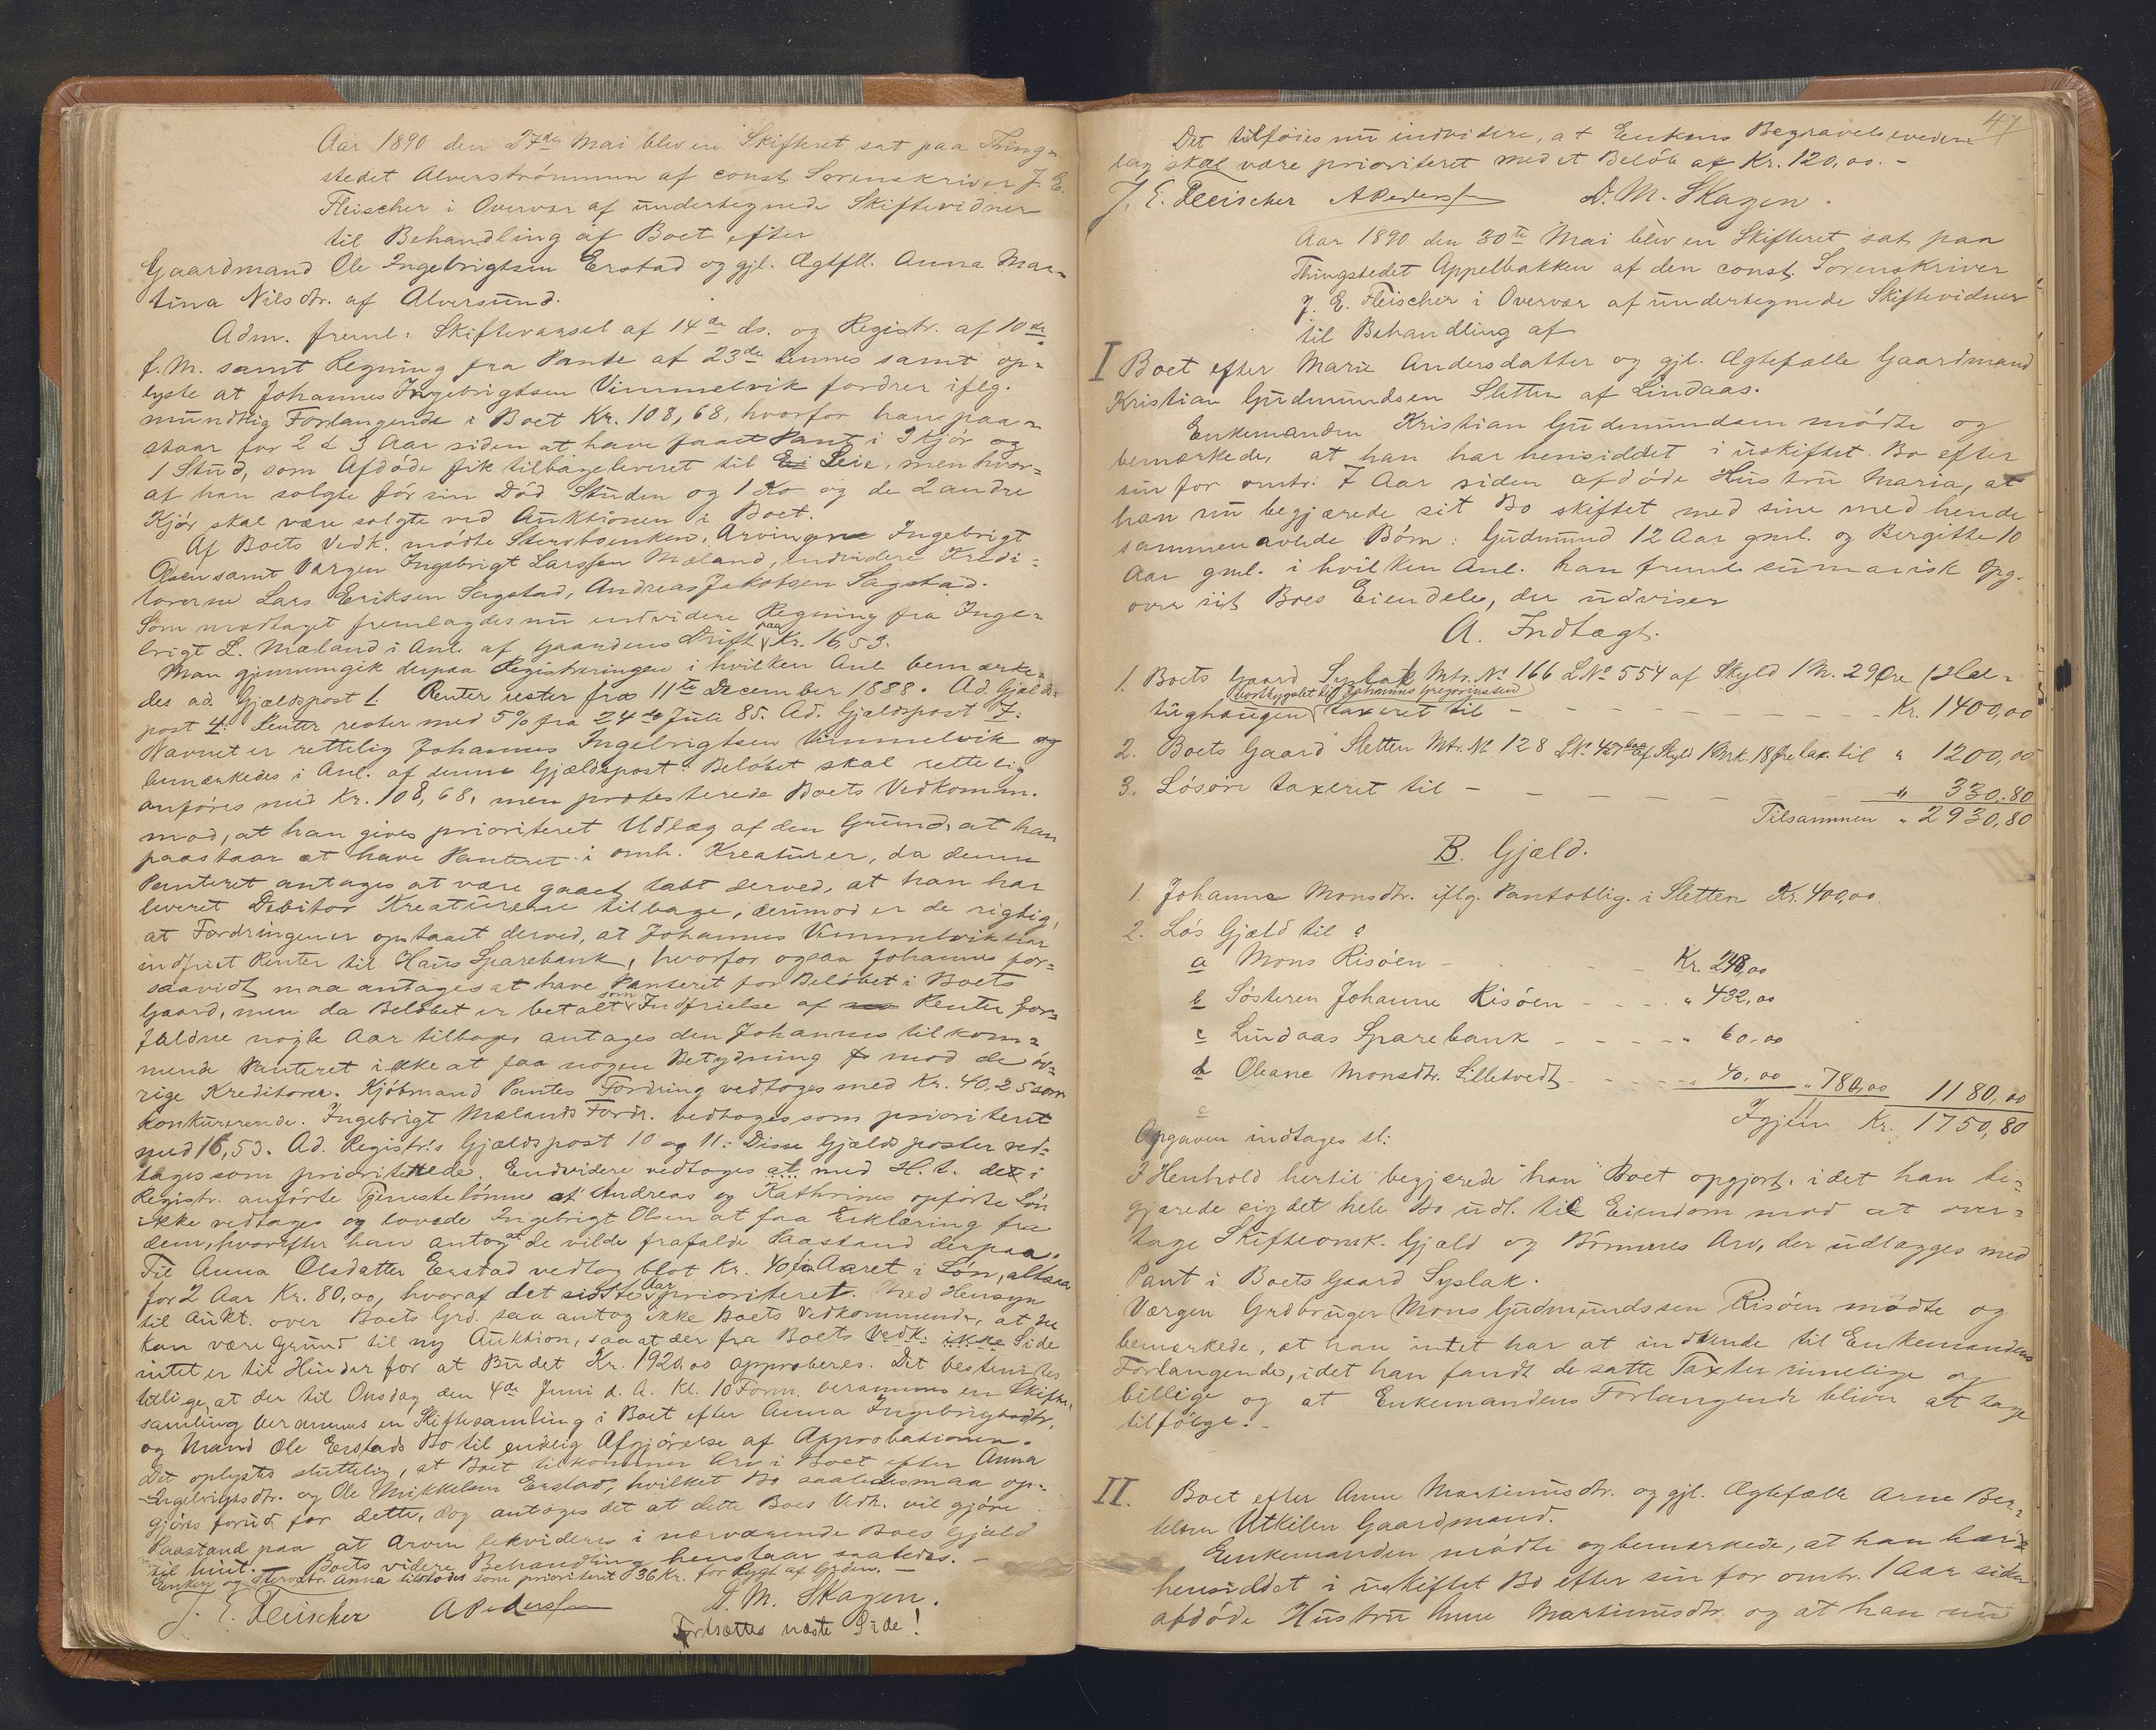 Aar 1890 den 27de Mai blev en Skifteret sat paa Thing-
stedet Alverstrømmen af const. Sorenskriver J. E.
Fleischer i Overvær af undertegnede Skiftevidner
til Behandling af Boet efter
Gaardmand Ole Ingebrigtsen Erstad og gjl. Ægtfll. Anna Mar-
tina Nilsdtr. af Alversund.
Adm. freml: Skiftevarsel af 14de ds. og Registr. af 10de
f. M. samt Regning fra Pante af 23de dennes samt op-
lyste at Johannes Ingebrigtsen Vimmelvik fordrer iflg.
mundtlig Forlangende i Boet Kr. 108,68, hvorfor han paa-
staar for 2 à 3 Aar siden at have faaet Pant i 3 Kjør og
1 Stud, som Afdøde fik tilbageleveret til Ei Leie, men hvor-
af han solgte før sin Død Studen og 1 Ko og de 2 andre
Kjør skal være solgte ved Auktionen i Boet.
Af Boets Vedk. mødte Stervboenken, Arvingerne Ingebrigt
Olsen samt Værgen Ingebrigt Larssen Mæland, endvidere Kredi-
torerne Lars Eriksen Sagstad, Andreas Jakobsen Sagstad.
Som modtaget fremlagdes nu endvidere Regning fra Inge-
brigt L. Mæland i Anl. af Gaardens Drift paa Kr. 16,53.
Man gjennemgik derpaa Registreringen i hvilken Anl bemærke-
des ad. Gjældspost 1. Renter rester fra 11te December 1888. Ad. Gjælds-
post 4. Renter rester med 5% fra 24de Juli 85. Ad. Gjældspost 7:
Navnet er rettelig Johannes Ingebrigtsen Vimmelvik og
bemærkedes i Anl. af denne Gjældspost: Beløbet skal rettelig
anføres med Kr. 108,68, men protesterede Boets Vedkomm.
mod, at han gives prioriteret Udlæg af den Grund, at han
paastaar at have Panteret i omh. Kreaturer, da denne
Panteret antages at være gaaet tabt derved, at han har
leveret Debitor Kreaturerne tilbage, derimod er de rigtig,
at Fordringen er opstaaet derved, at Johannes Vimmelvik har
indfriet Renter til Haus Sparebank, hvorfor ogsaa Johannes for-
saavidt maa antages at have Panteret for Beløbet i Boets
Gaard, men da Beløbet er betalt som Indfrielse af Renter for-
faldne nogle Aar tilbage antages den Johannes tilkom-
mende Panteret ikke at faa nogen Betydning mod de øv-
rige Kreditorer. Kjøbmand Pantes Fordring vedtoges med Kr. 40,25 som
konkurerende. Ingebrigt Mælands Fordr. vedtoges som prioriteret
med 16,53. Ad. Registr.s Gjældspost 10 og 11: Disse Gjældsposter ved-
tages som prioriterede. Endvidere vedtoges at med H. t. det i
Registr. anførte Tjenestelønne at Andreas og Kathrines opførte Løn
ikke vedtages og lovede Ingebrigt Olsen at faa Erklæring fra
dem, hvorefter han antog at de vilde frafalde Paastand derpaa.
Til Anna Olsdatter Erstad vedtog blot Kr. 40 for Aaret i Løn, altsaa
for 2 Aar Kr. 80,00, hvoraf det sidste Aar prioriteret. Med Hensyn
til Aukt. over Boets Grd. saa antog ikke Boets Vedkommende, at der
kan være Grund til ny Auktion, saa at der fra Boets Vedk. ikke Side
intet er til Hinder for at Budet Kr. 1920,00 approberes. Det bestemtes
tillige, at der til Onsdag den 4de Juni d. A. Kl. 10 Form. berammes en Skifte-
samling berammes en Skiftesamling i Boet efter Anna Ingebrigtsdtr.
og Mand Ole Erstads Bo til endelig Afgjørelse af Approbationen.
Det oplystes sluttelig, at Boet tilkommer Arv i Boet efter Anna
Ingebrigtsdtr. og Ole Mikkelsen Erstad, hvilket Bo saaledes maa op-
gjøres forud for dette, dog antages det at dette Boes Vedk. vil gjøre
Paastand paa at Arven likvideres i nærværende Boes Gjæld
til hint. — Boets videre Behandling henstaar saaledes. —
Enken og Stervdtr. Anna tilstodes som prioriteret 36 Kr. for Røgt af Grden. —
J. E. Fleischer A Pedersen D. M. Skagen.
Fortsættes næste Side!
47
Det tilføies nu endvidere, at Enkens Begravelsesveder-
lag skal være prioriteret med et Beløb af Kr. 120,00. -
J. E. Fleischer A Pedersen D. M. Skagen.
Aar 1890 den 30te Mai blev en Skifteret sat paa
Thingstedet Appelbakken af den const. Sorenskriver
J. E. Fleischer i Overvær af undertegnede Skiftevidner
til Behandling af
I Boet efter Marie Andersdatter og gjl. Ægtefælle Gaardmand
Kristian Gudmundsen Sletten af Lindaas.
Enkemanden Kristian Gudmundsen mødte og
bemærkede, at han har hensiddet i uskiftet Bo efter
sin for omtr. 7 Aar siden afdøde Hustru Maria, at
han nu begjærede sit Bo skiftet med sine med hende
sammenavlede Børn: Gudmund 12 Aar gml. og Bergitte 10
Aar gml. i hvilken Anl. han freml. sumarisk Opg.
over sit Boes Eiendele, der udviser
A. Indtægt.
1. Boets Gaard Syslak Mtr. No 166 LNo 554 af Skyld 1 M. 29 Øre (Hal-
bortbygslet til Johannes Gregoriussen
tughaugen) taxeret til - - - - - Kr. 1400,00
2. Boets Gaard Sletten Mtr. No 128 LNo 427 af Skyld 1 Mrk. 18 Øre tax. til " 1200,00
3. Løsøre taxeret til - - - - - " 330,80
Tilsammen " 2930,80
B. Gjæld.
1. Johanna Monsdtr. iflg. Pantoblig. i Sletten Kr. 400,00
2. Løs Gjæld til:
a Mons Risøen - - - Kr. 248,00
b Søsteren Johanne Risøen - - - " 432,00
c Lindaas Sparebank - - - " 60,00
d Oleane Monsdtr. Lilletvedt - - - " 40,00 " 780,00 1180,00
e
Igjen Kr. 1750,80
Opgaven indtages sl:
I Henhold hertil begjærede han Boet opgjort, idet han be-
gjærede sig det hele Bo udl. til Eiendom mod at over-
tage Skifteomk. Gjæld og Børnenes Arv, der udlægges med
Pant i Boets Gaard Syslak.
Værgen Grdbruger Mons Gudmundssen Risøen mødte og
bemærkede, at han intet har at indvende til Enkemandens
Forlangende, idet han fandt de satte Taxter rimelige og
billige og at Enkemandens Forlangende bliver at tage
tilfølge. -
II. Boet efter Anne Martinusdtr. og gjl. Ægtefælle Arne Ber-
Utkilen Gaardmand.
Enkemanden mødte og bemærkede, at han har
hensiddet i uskiftet Bo efter sin for omtr. 1 Aar siden
afdøde Hustru Anne Martinusdtr. og at han nu